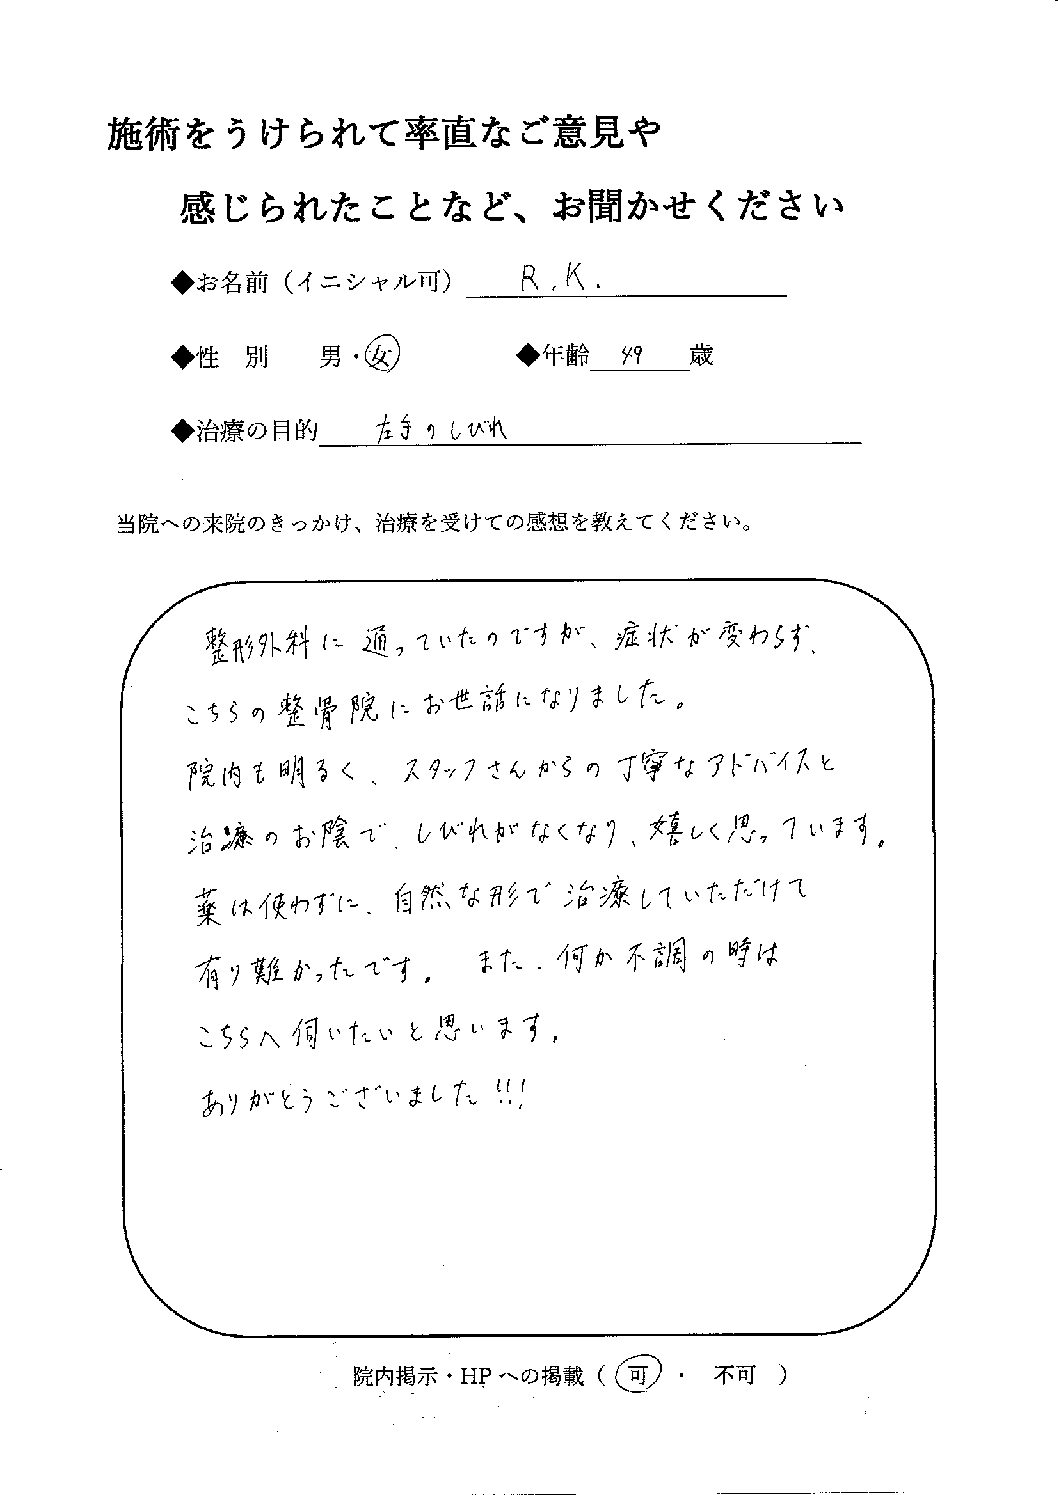 施術をうけられて率直なご意見や
感じられたことなど、お聞かせください
◆お名前（イニシャル可） R.K.
◆性 別 男・女 ◆年齢 49 歳
◆治療の目的 左手のしびれ
当院への来院のきっかけ、治療を受けての感想を教えてください。
整形外科に通っていたのですが、症状が変わらず、
こちらの整骨院にお世話になりました。
院内も明るく、スタッフさんからの丁寧なアドバイスと
治療のお陰で、しびれがなくなり、嬉しく思っています。
薬は使わずに、自然な形で治療していただけて
有り難かったです。 また、何か不調の時は
こちらへ伺いたいと思います。
ありがとうございました!!!
院内掲示・HPへの掲載（ 可 ・ 不可 ）